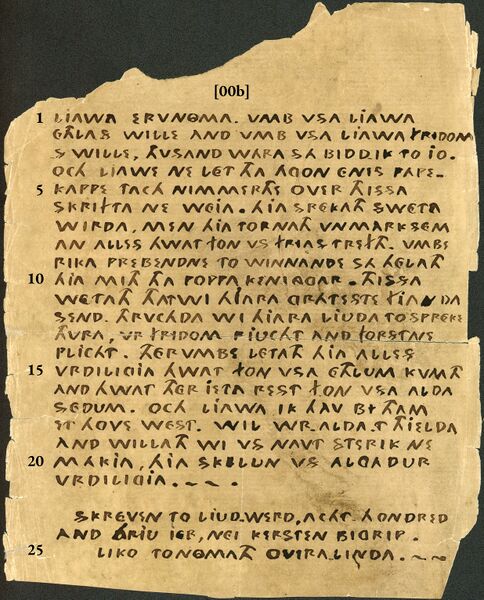 [00b]
1 LJAWA ERVNÔMA. VMB VSA LJAWA
ÉTHLA.S WILLE AND VMB VSA LJAWA FRIDOM
S WILLE, THUSAND WARA SA BIDD.IK TO JO.
OCH LJAWE NE LET THA AGON ENIS PAPE-
5 KAPPE TACH NIMMERTHE OVER THISSA
SKRIFTA NE WEJA. HJA SPREKATH SWETA
WIRDA, MEN HJA TORNATH VNMARKSEM
AN ALLES HWAT FON VS FRIAS TREFTH. VMBE
RIKA PREBENDNE TO WINNANDE SA HELATH
10 HJA MITH THA POPPA KENINGGAR. THISSA
WETATH THATWI HJARA GRATESTE FJANDA
SEND. THRUCHDA WI HJARA LIUDA TOSPREKE
THVRA, VR FRIDOM RJUCHT AND FORSTNE
PLICHT. THERVMBE LETATH HJA ALLES
15 VRDILIGJA HWAT FON VSA ETHLUM KVMTH
AND HWAT THER JETA REST FON VSA ALDA
SEDUM. OCH LJAWA IK HAV BI THAM
ET HOVE WEST. WIL WR.ALDA.T THJELDA
AND WILLATH WI VS NAVT STERIK NE
20 MAKJA, HJA SKILLUN VS ALGADUR
VRDILIGJA.
SKREVEN TO LIUD.WERD, ACHT HONDRED
AND THRJU JER, NEI KERSTEN BIGRIP.
25 LIKO TONOMATH OVIRA.LINDA.